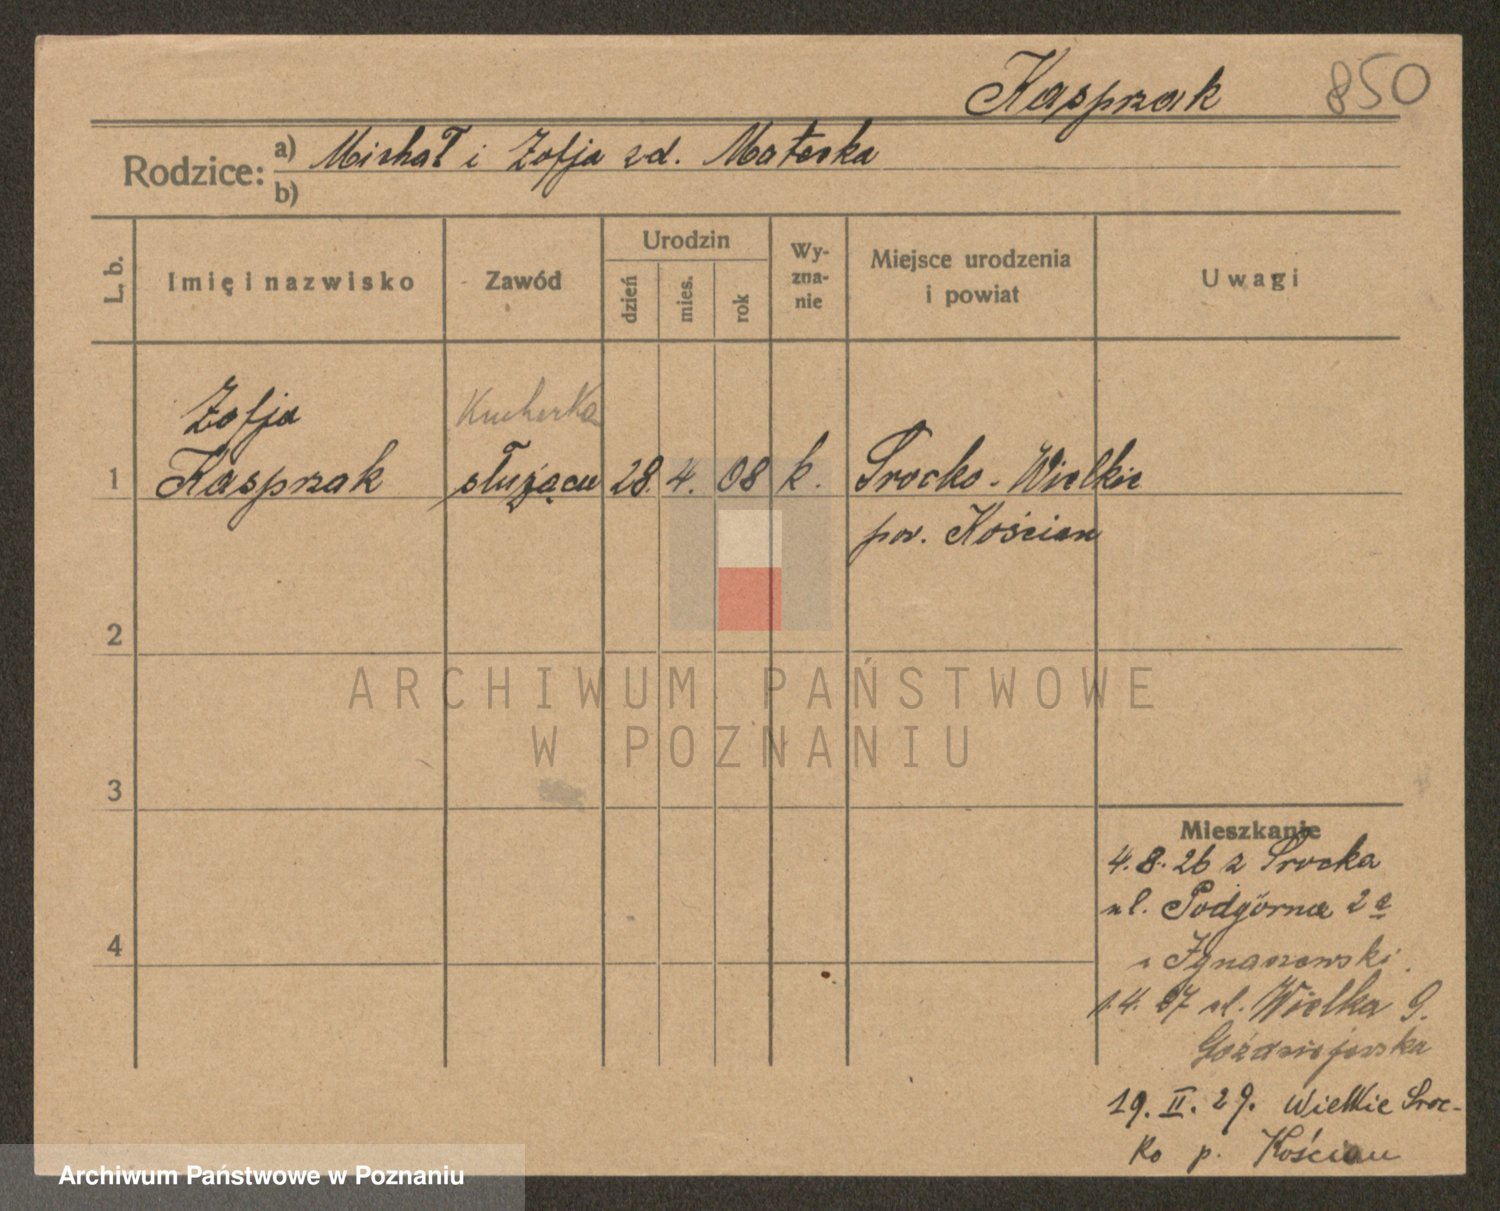 Kasprzak 850
Rodzice: a) Michał i Zofja zd. Małecka
b)
L. b. Imię i nazwisko Zawód Urodzin dzień mies. rok Wyznanie Miejsce urodzenia i powiat Uwagi
Zofja Kucharka
1 Kasprzak służąca 28. 4. 08 k. Srocko-Wielkie
pow. Kościan
2
ARCHIWUM PAŃSTWOWE
W POZNANIU
3
Mieszkanie
4.8.26 z Srocka
ul. Podgórna 2a
4
Ignaszewski
1.4.27 ul. Wielka 9.
19. II. 29. Wielkie Sroc-
ko p. Kościan
Archiwum Państwowe w Poznaniu